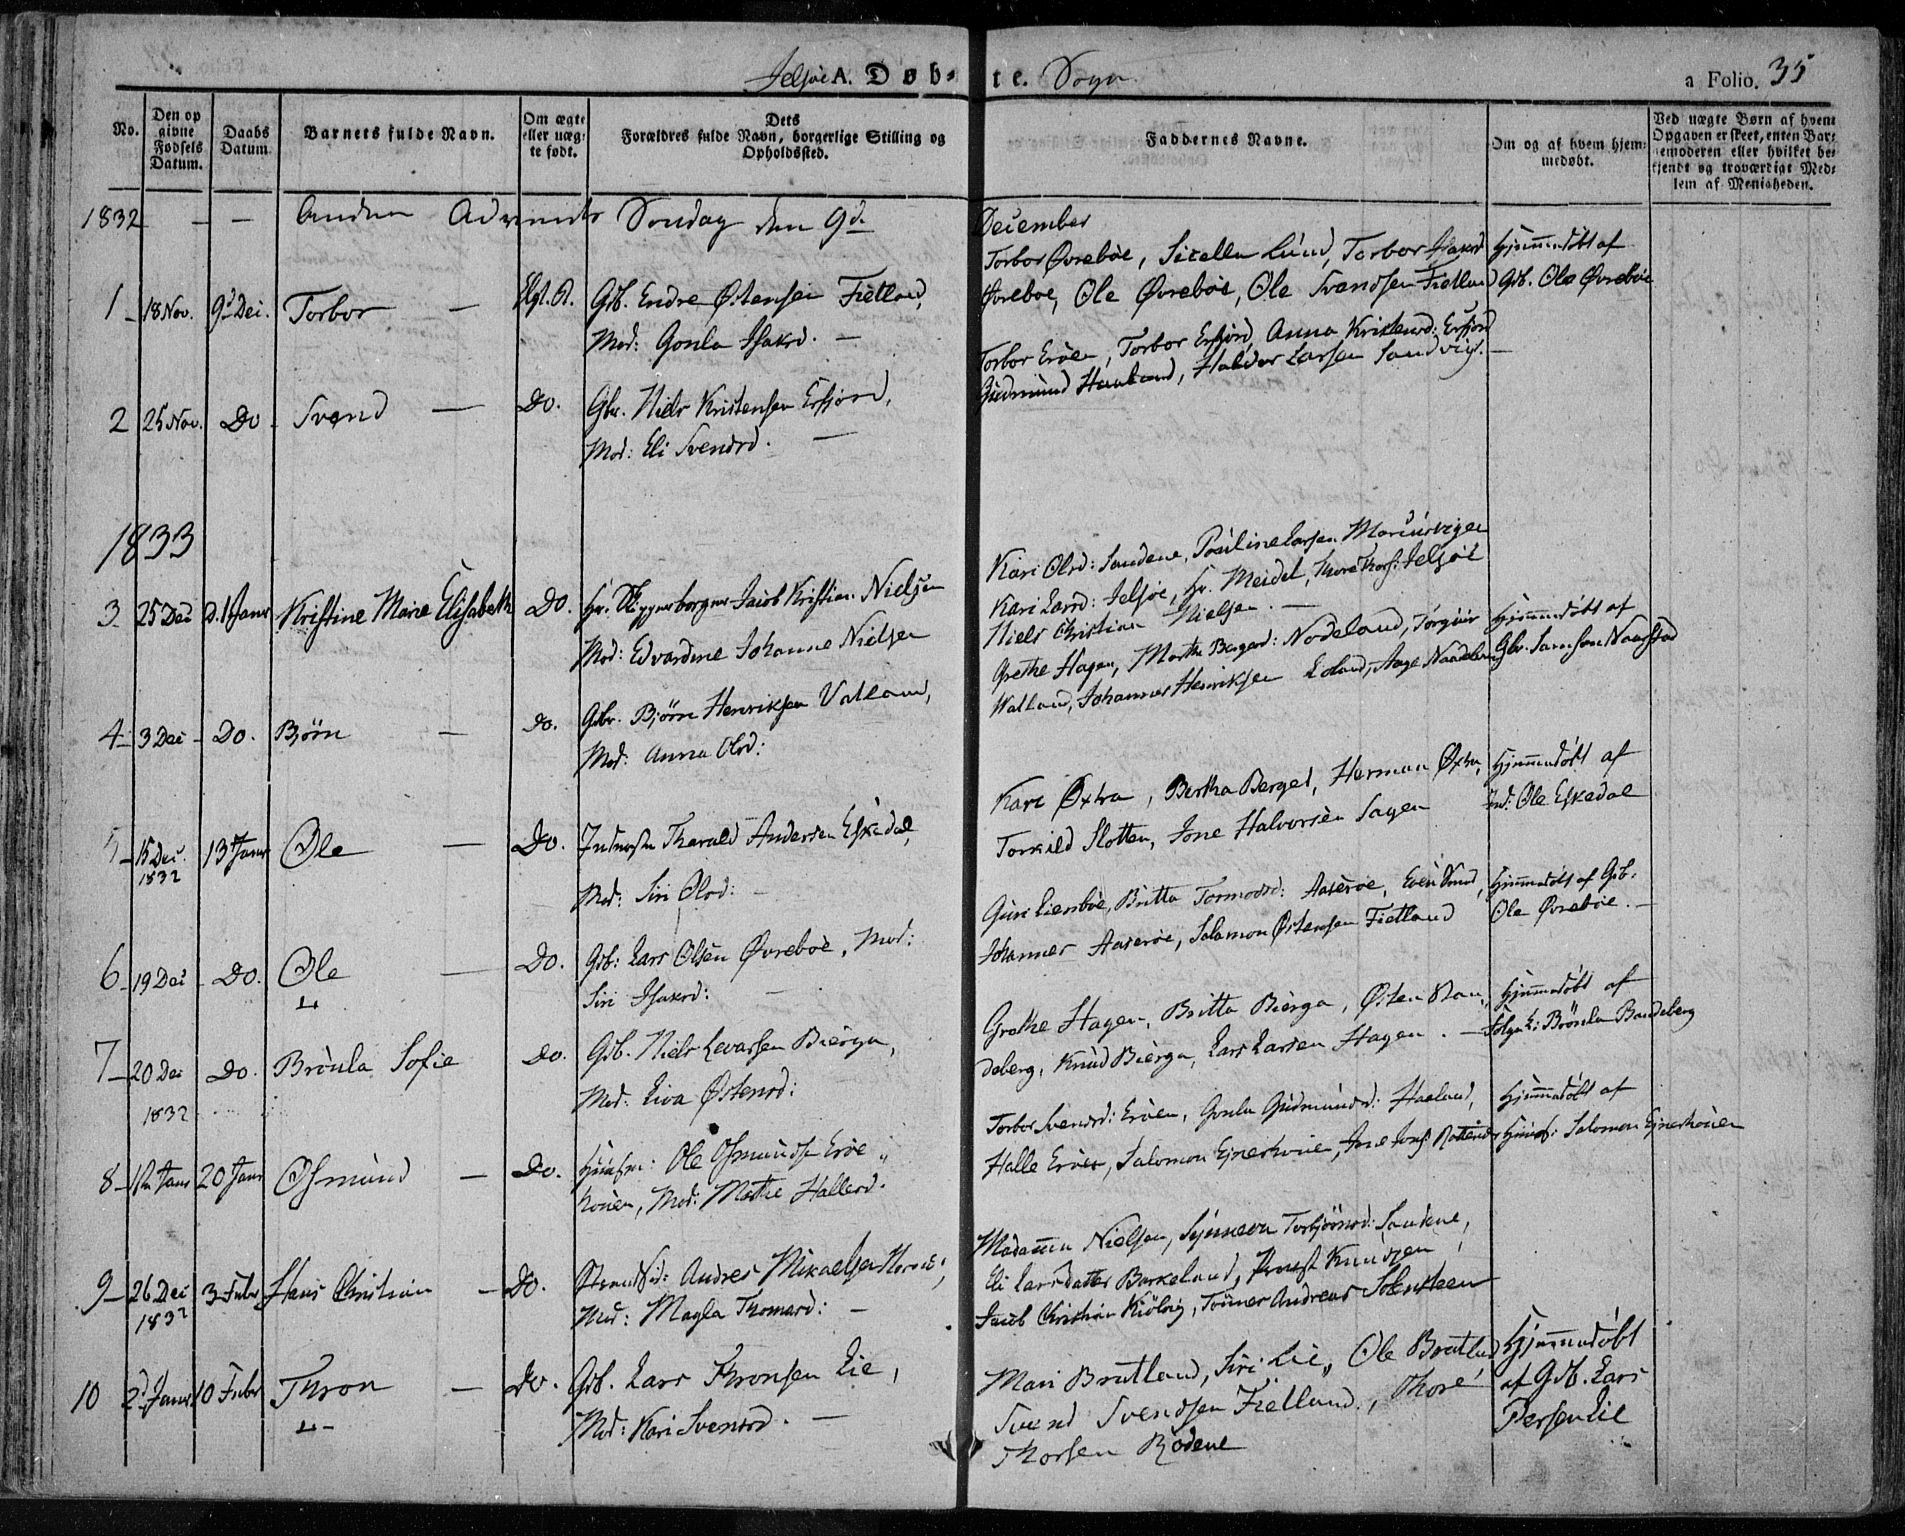 Jelsøe A. Døb- te. Sogn
a Folio. 35
No.
Den op givne Fødsels Datum.
Daabs Datum
Barnets fulde Navn.
Om ægte eller uæg- te født.
Dets Forældres fulde Navn, borgerlige Stilling og Opholdssted.
Faddernes Navne.
Om og af hvem hjem- medøbt.
Ved uægte Børn af hvem Opgaven er skeet, enten Bar- nemoderen eller hvilket be- kjendt og troværdigt Med- lem af Menigheden.
1832 — — Anden Advents Søndag den 9d. December
1 18 Nov. 9d Dec. Torbor — Ægt. Gsb. Endre Østensen Fietland,
Mod: Gonla Isakrd. —
Torbor Øvrebøe, Sicella Lund, Torbor Isakrd
Øvreboe, Ole Øvrebøe, Ole Svendsen Fietland
Hjemmedøbt af
Gsb. Ole Øvrebøe
2 25 Nov. Do Svend — Do. Gbr. Niels Kristensen Erfiord,
Mod: Eli Svendrd. —
Torbor Erøen, Torbor Erfiord, Anna Kristensd: Erfiord
Gudmund Haaland, Haldor Larsen Sandvig. —
1833
3 25 Dec d. 1 Janr Kristine Marie Elisabeth Do. Hr. Skipperborger Jacob Kristian Nielsen
Mod: Edvardine Johanne Nielsen
Kari Olrd: Sandene, Pouline Larsen Mariusvigen
Kari Larsd: Jelsøe, Hr. Meidel, Thore Thors: Jelsøe
Niels Christian Nielsen. —
4 3 Dec Do. Bjørn — Do. Gbr. Bjørn Henriksen Vatland,
Mod: Anna Olrd:
Grethe Hagen, Marthe Bergersd: Nodeland,
Watland, Johannes Henriksen
Hjemmedøbt af
Gbr. Samson Naastad
5 15 Dec. 1832 13 Janr Ole — Do. Tharald Andersen Eskedal,
Mod: Siri Olrd: —
Kari Øxtra, Bertha Berget, Herman Øxtra,
Torkild Slotten, Jone Halvorsen Sagen
Hjemmedøbt af
Ole Eskedal
6 19 Dec Do. Ole — Do. Gsb: Lars Olsen Øvrebøe, Mod:
Siri Isakrd: —
Guri Liensbøe, Britta Tormodsd: Aaserøe,
Johannes Aaserøe, Salamon Østensen Fietland
Hjemmedøbt af Gsb.
Ole Øvrebøe. —
7 20 Dec 1832 Do. Brònla Sofie Do. Gsb. Niels Bierga,
Mod: Liva Østensd:
Grethe Hagen, Britta Bierga, Østen Ban-
deberg, Knud Bierga, Lars Larsen Hagen. —
Hjemmedøbt af
Brònla Bandeberg
8 Janr 20 Janr Osmund — Do. Ole Osmunds Erøe-
houen, Mod: Marthe Hallerd.
Torbor Svendrd: Erøen, Gonla Gudmundsd: Haaland,
Halle Erøen, Salomon Ejnerhouen,
Hjemmedøbt af
Salomon Ejnerhouen
9 26 Dec 1832 3 Febr Hans Christian — Do. Strands: Andres Mikaelsen
Mod: Magla Thomasd: —
Madamme Nielsen, Synneva Torbjørnsd: Sandene,
Eli Larsdatter Barkeland, Knudsen,
Jacob Christian Kiølvig, Andreas
10 2d Janr 10 Febr Thron — Do. Gsb. Lars Thronsen Lie,
Mod: Kari Svendrd. —
Mari Bratland, Siri Lie, Ole Bratland
Svend Svendsen Fietland, Thore
Thorsen Rødene
Hjemmedøbt
af Gsb. Lars
Persen Lie